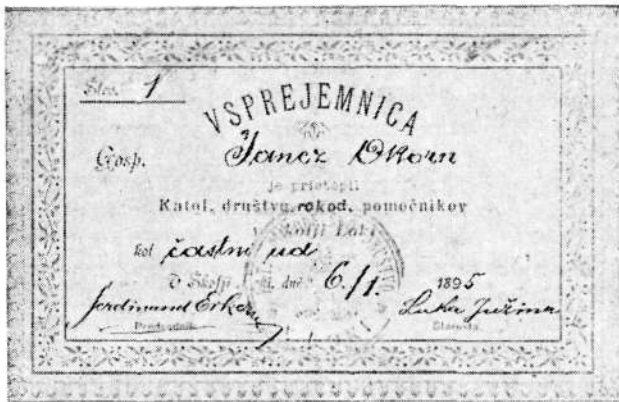 Štev. 1
VSPREJEMNICA
Gosp. Janez Okorn
je pristopil
Katol. društvu rokod. pomočnikov
v Škofji Loki
kot častni ud
V Škofji dné 6./1. 1895
Ferdinand Erker
Luka Južina
Predsednik.
Starosta.